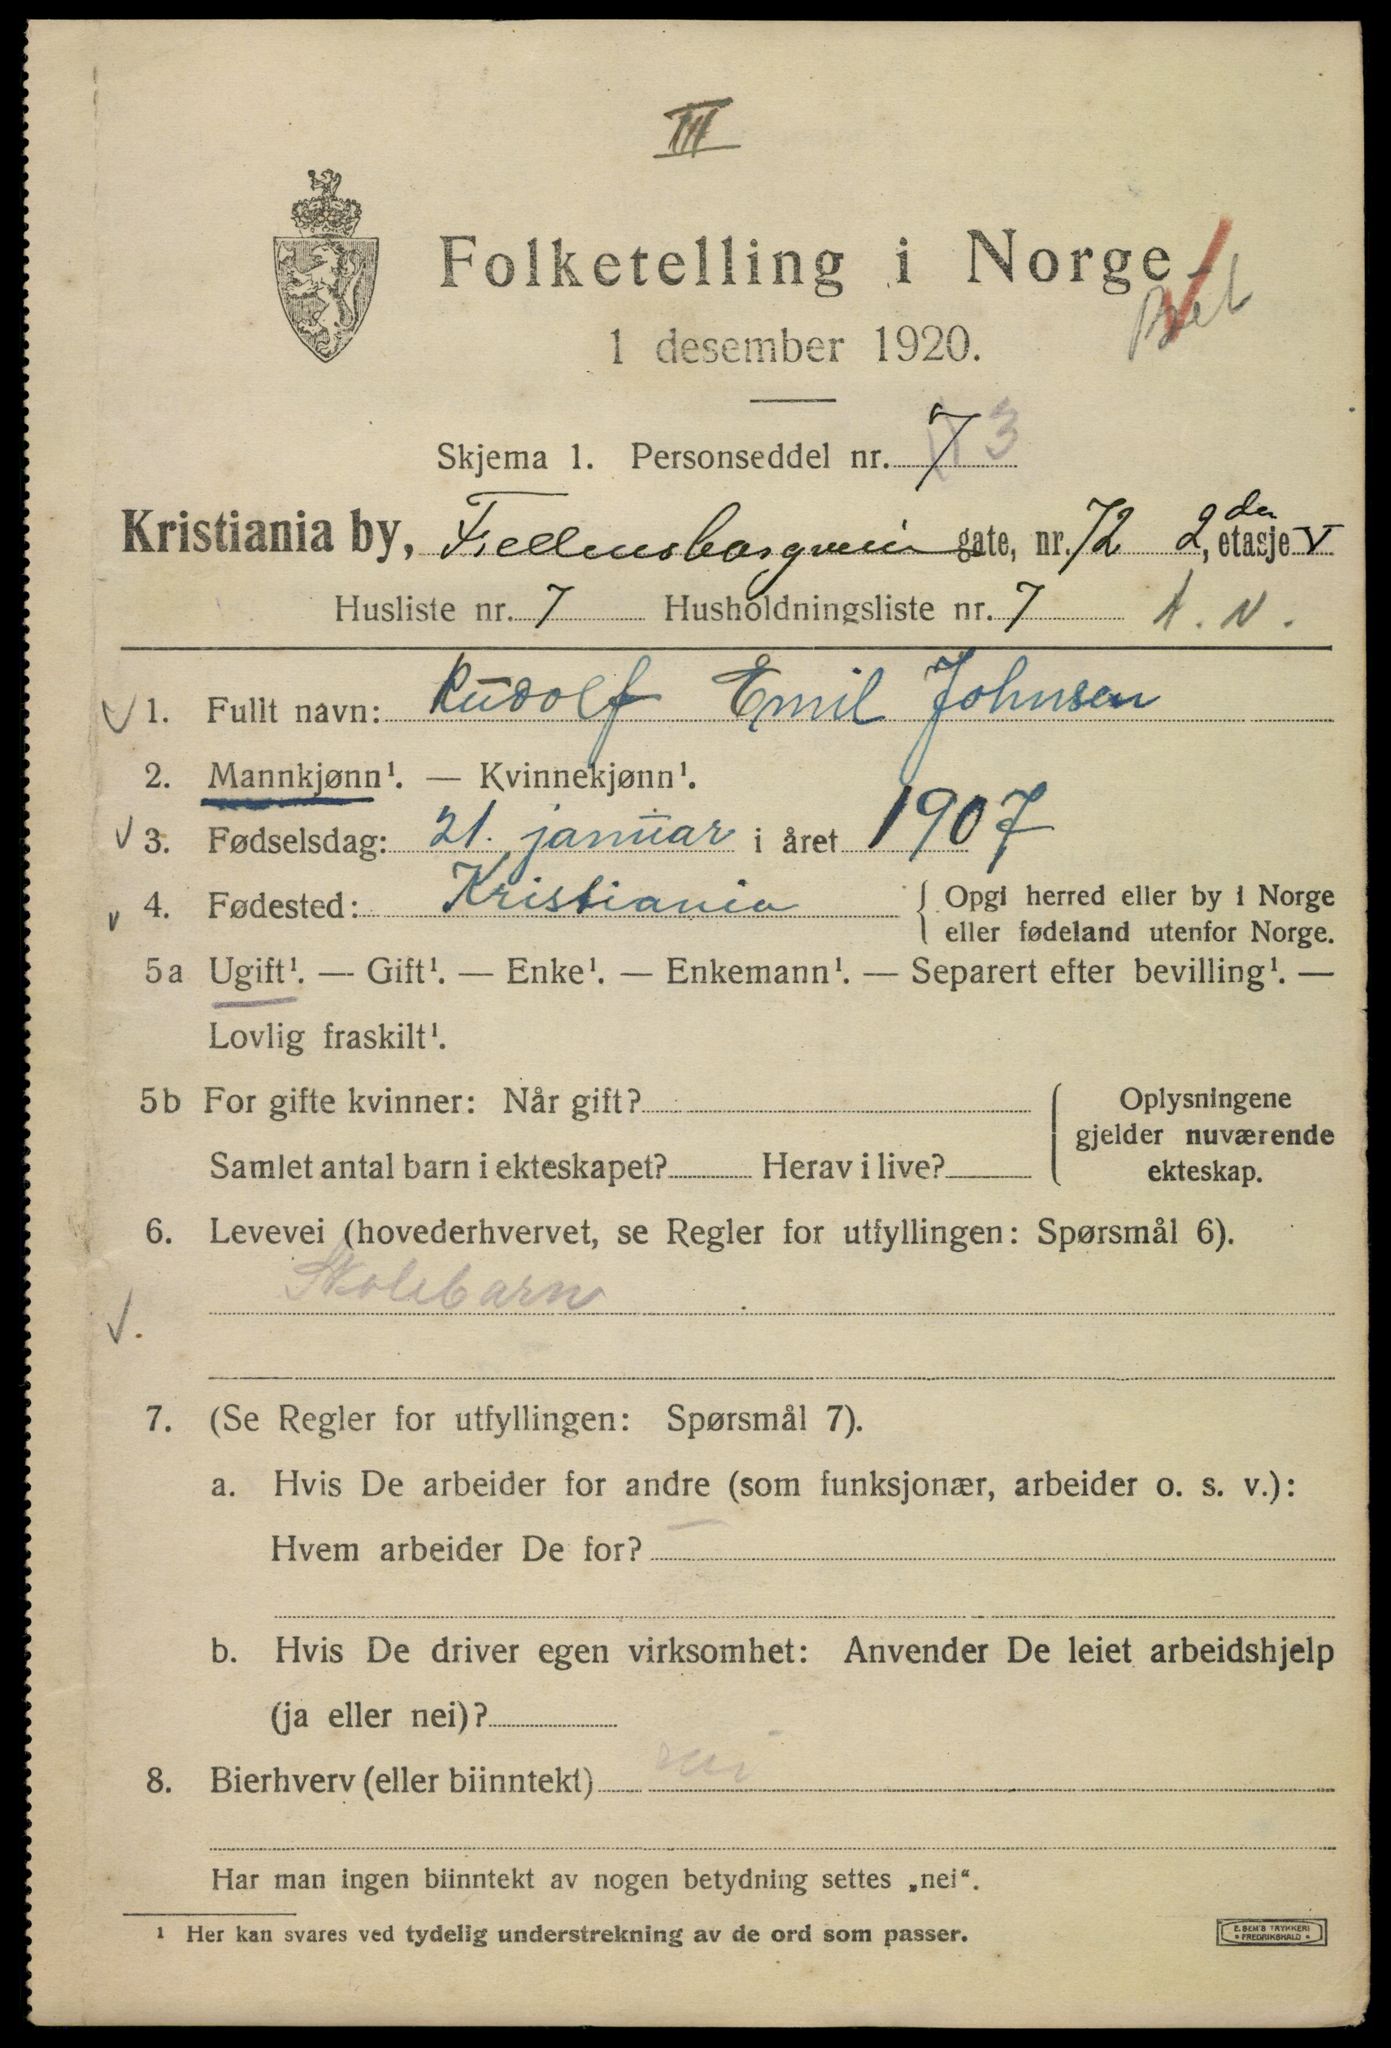 III
Folketelling i Norge
1 desember 1920.
Skjema 1. Personseddel nr. 7 3
Kristiania by, gate, nr. 72 2den, etasje V
Husliste nr. 7 Husholdningsliste nr. 7
1. Fullt navn: Rudolf Emil Johnsen
2. Mannkjønn¹. — Kvinnekjønn¹.
3. Fødselsdag: 21. januar i året 1907
4. Fødested: Kristiania { Opgi herred eller by i Norge
eller fødeland utenfor Norge.
5a Ugift¹. — Gift¹. — Enke¹. — Enkemann¹. — Separert efter bevilling¹. —
Lovlig fraskilt¹.
5b For gifte kvinner: Når gift? Oplysningene
gjelder nuværende
Samlet antal barn i ekteskapet? Herav i live? ekteskap.
6. Levevei (hovederhvervet, se Regler for utfyllingen: Spørsmål 6).
Skolebarn
7. (Se Regler for utfyllingen: Spørsmål 7).
a. Hvis De arbeider for andre (som funksjonær, arbeider o. s. v.):
Hvem arbeider De for? —
b. Hvis De driver egen virksomhet: Anvender De leiet arbeidshjelp
(ja eller nei)?
8. Bierhverv (eller biinntekt) nei
Har man ingen biinntekt av nogen betydning settes „nei“.
¹ Her kan svares ved tydelig understrekning av de ord som passer.
E. SEM'S TRYKKERI
FREDRIKSHALD